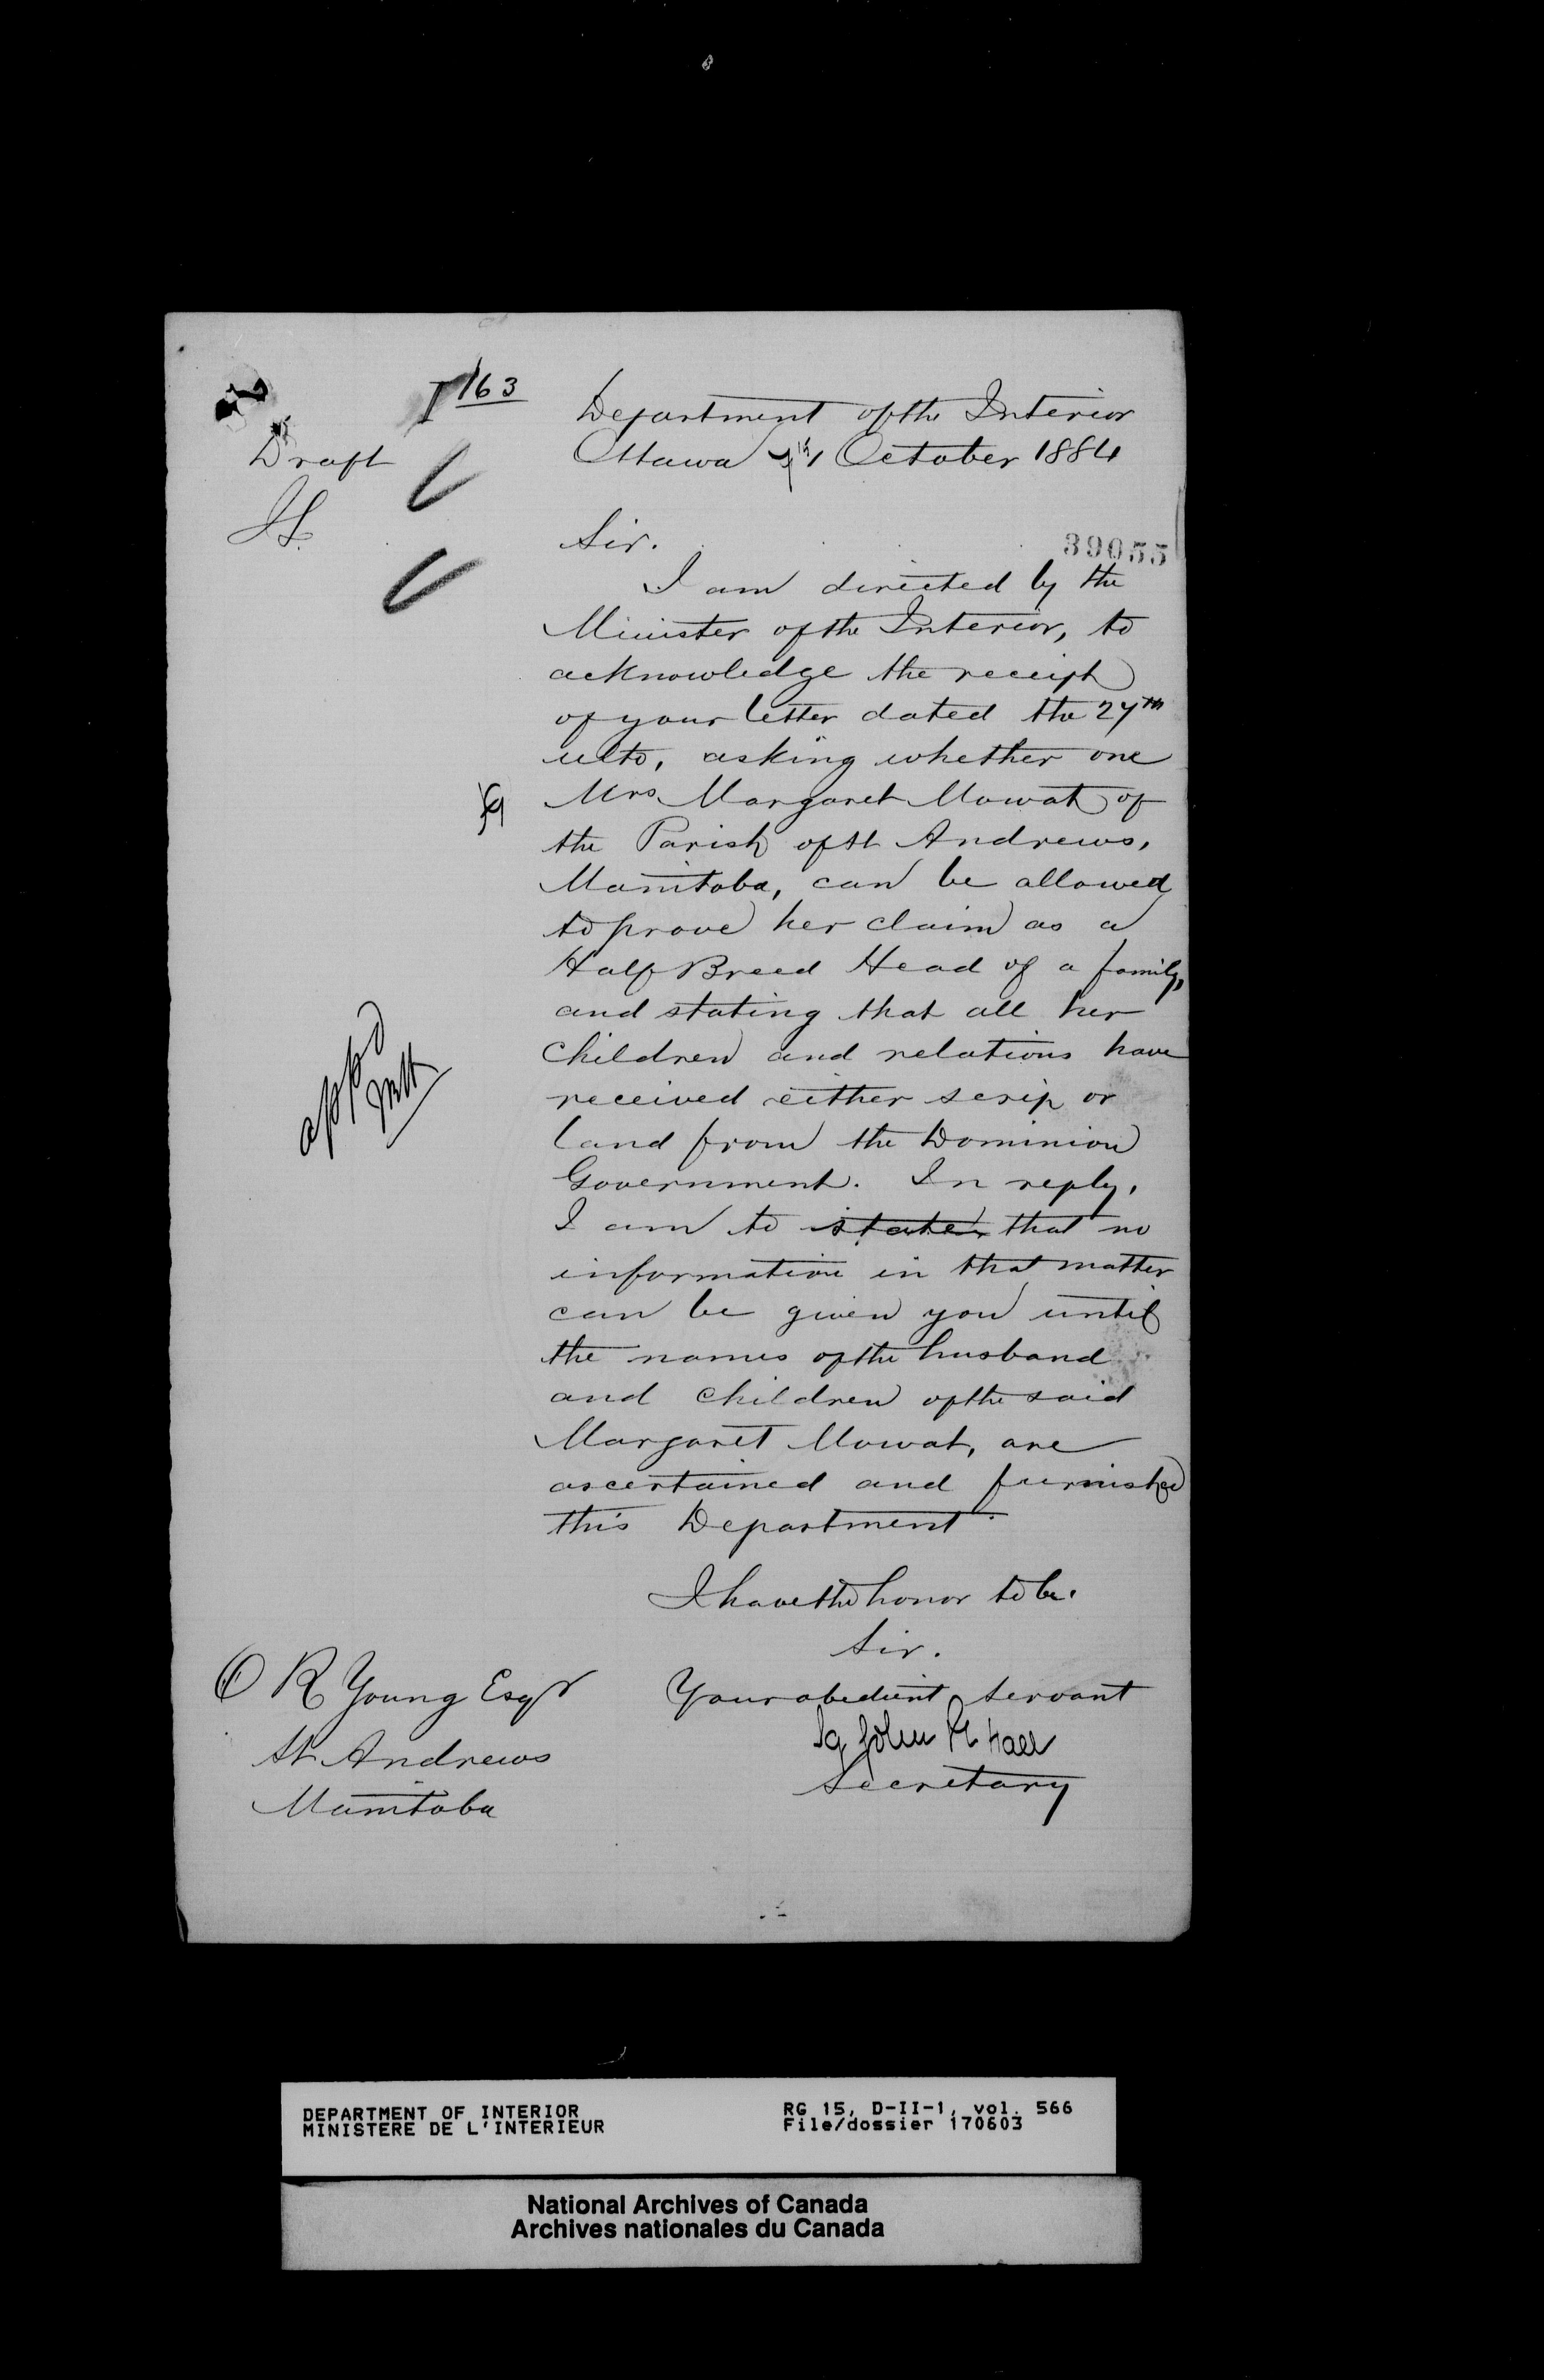 I 163
Draft
Department of the Interior
Ottawa October 1884
Sir.
39055
I am directed by the
Minister of the Interior, to
acknowledge the receipt
of your letter dated the 27th
ulto, asking whether one
Mrs Margaret Mowat of
the Parish of St Andrews,
Manitoba, can be allowed
to prove her claim as a
Half Breed Head of a family,
and stating that all her
children and relations have
received either scrip or
land from the Dominion
Government. In reply,
I am to state that no
information in that matter
can be given you until
the names of the husband
and children of the said
Margaret Mowat, are
ascertained and furnished
this Department.
appd
I have the honor to be.
Sir.
Your obedient servant
Sg John R Hall
Secretary
O R Young Esqr
St Andrews
Manitoba
DEPARTMENT OF INTERIOR
MINISTERE DE L'INTERIEUR
RG 15, D-II-1, vol. 566
File/dossier 170603
National Archives of Canada
Archives nationales du Canada